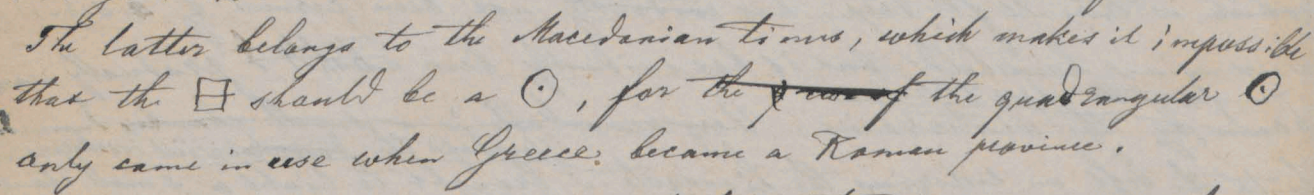 The latter belongs to the Macedonian times, which makes it impossible
that the ⊞ should be a ⊙, for the the quadrangular ⊙
only came in use when Greece became a Roman province.